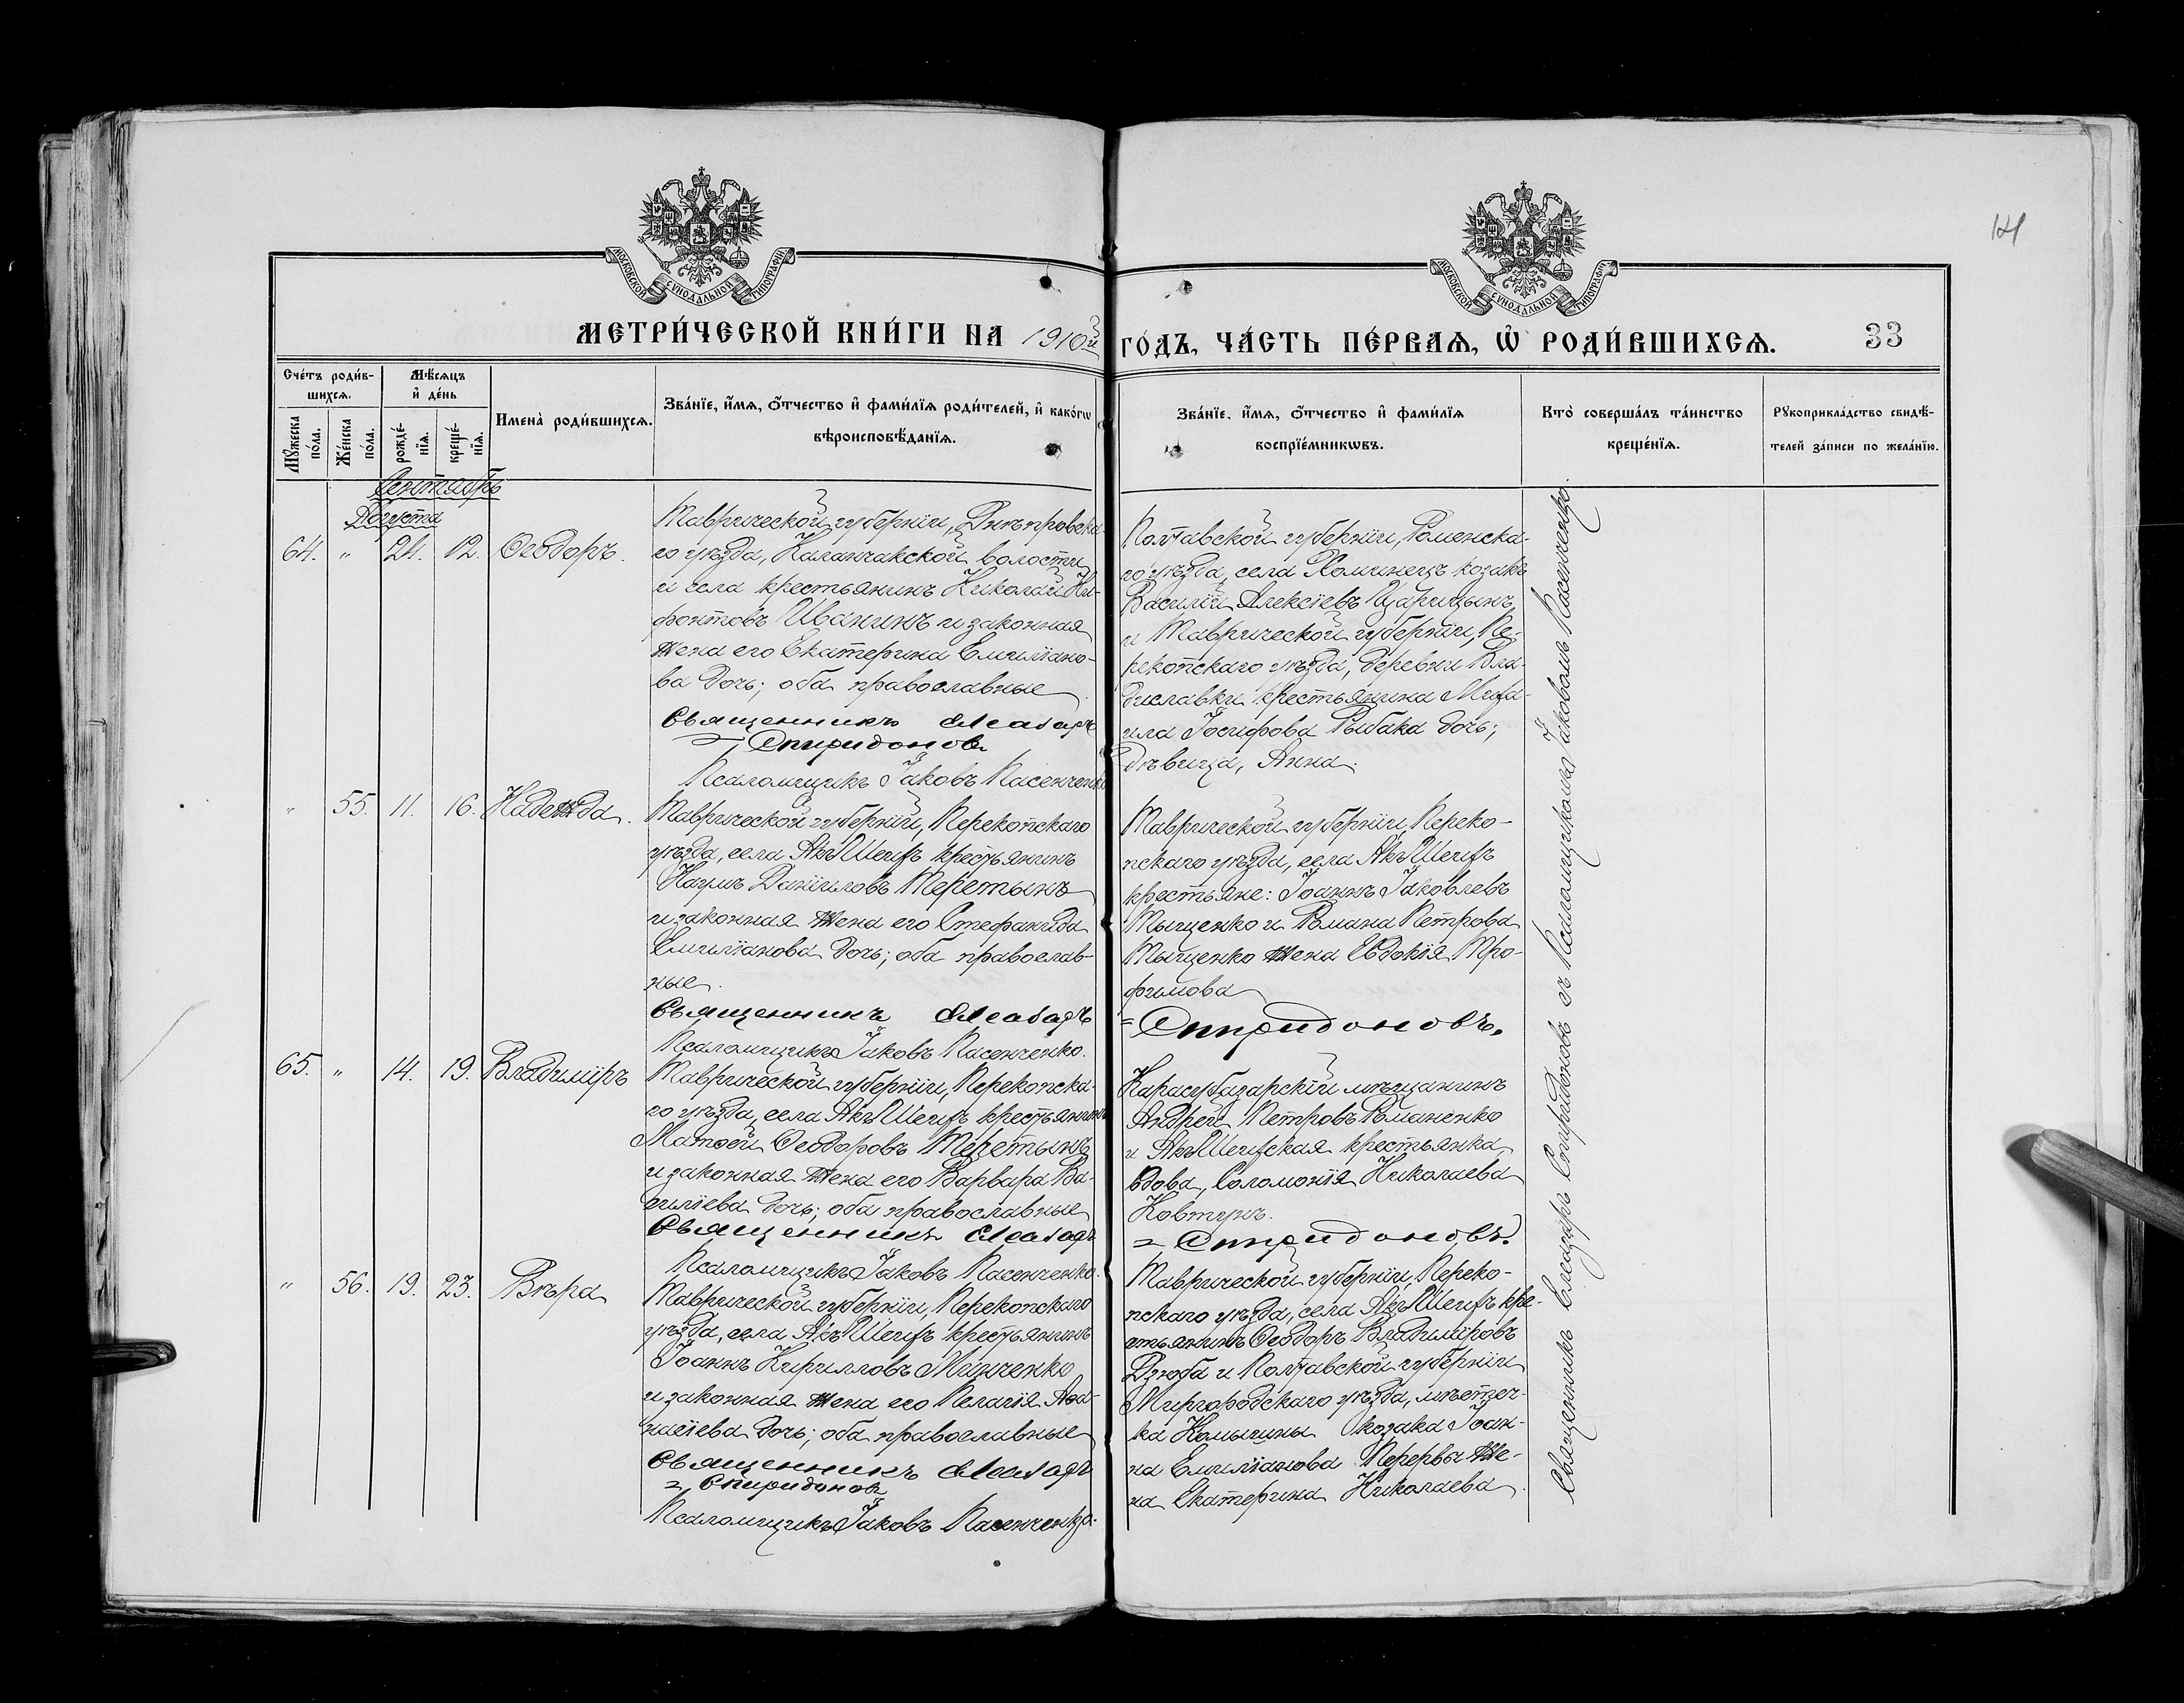 МОСКОВСКОЙ СѴНОДАЛЬНОЙ ТИПОГРАФІИ
МОСКОВСКОЙ СѴНОДАЛЬНОЙ ТИПОГРАФІИ
МЕТРИ́ЧЕСКОЙ КНИ́ГИ НА 1910й ГО́ДЪ, ЧА́СТЬ ПЕ́РВАѦ, Ѿ РОДИ́ВШИХСѦ.
33
Сче́тъ роди́в-
шихсѧ.
Мꙋжеска
по́ла.
Же́нска
по́ла.
Мѣ́сѧцъ
и҆ де́нь
рожде́-
нїѧ.
креще́-
нїѧ.
Имена̀ роди́вшихсѧ.
Зва́нїе, и҆́мѧ, ѻ҆́тчество и҆ фами́лїѧ роди́телей, и҆ како́гѡ
вѣроисповѣ́данїѧ.
Зва́нїе, и҆́мѧ, ѻ҆́тчество и҆ фами́лїѧ
воспрїе́мникѡвъ.
Кто̀ соверша́лъ та́инство
креще́нїѧ.
Рꙋкоприкла́дство свидѣ́-
телей за́писи по жела́нїю.
Сентябрь
Августа
64. " 24. 12. Ѳеодоръ.
Таврической губерніи, Днѣпровска-
го уѣзда, Каланчакской волости
и села крестьянинъ Николай Ни-
фонтовъ Иванинъ и законная
жена его Екатерина Емиліано-
ва дочь; оба православные.
Священникъ Елеазаръ
= Спиридоновъ
Псаломщикъ Іаковъ Пасенченко
Полтавской губерніи, Роменска-
го уѣзда, села Хоминецъ козакъ
Василій Алексіевъ Царицынъ
и Таврической губерніи, Пе-
рекопскаго уѣзда, деревни Вла-
диславки крестьянина Миха-
ила Іосифова Рыбака дочь;
дѣвица, Анна.
" 55. 11. 16. Надежда.
Таврической губерніи, Перекопскаго
уѣзда, села Акъ-Шеихъ крестьянинъ
Наумъ Даніиловъ Теретынъ
и законная жена его Стефанида
Емиліанова дочь; оба православ-
ные.
Священникъ Елеазаръ
Псаломщикъ Іаковъ Пасенченко.
Таврической губерніи, Переко-
пскаго уѣзда, села Акъ-Шеихъ
крестьяне: Іоаннъ Іаковлевъ
Тыщенко и Романа Петрова
Тыщенко жена Евдокія Тро-
фимова
= Спиридоновъ.
65. " 14. 19. Владиміръ
Таврической губерніи, Перекопска-
го уѣзда, села Акъ-Шеихъ крестьянинъ
Матѳей Ѳеодоровъ Теретынъ
и законная жена его Варвара Ва-
силіева дочь; оба православные
Священникъ Елеазаръ
Псаломщикъ Іаковъ Пасенченко.
Карасубазарскій мѣщанинъ
Андрей Петровъ Романенко
и Акъ-Шеихская крестьянка,
вдова, Соломонія Николаева
Ковтунъ.
= Спиридоновъ.
" 56. 19. 23. Вѣра
Таврической губерніи, Перекопскаго
уѣзда, села Акъ-Шеихъ крестьянинъ
Іоаннъ Кирилловъ Минченко
и законная жена его Пелагія Аѳа-
насіева дочь; оба православные
Священникъ Елеазаръ
= Спиридоновъ
Псаломщикъ Іаковъ Пасенченко.
Таврической губерніи, Переко-
пскаго уѣзда, села Акъ-Шеихъ кре-
стьянинъ Ѳеодоръ Владиміровъ
Дзюба и Полтавской губерніи
Миргородскаго уѣзда, мѣстеч-
ка Комышны козака Іоан-
на Емиліанова Перервы же-
на Екатерина Николаева.
Священникъ Елеазаръ Спиридоновъ съ Псаломщикомъ Іаковомъ Пасенченко.